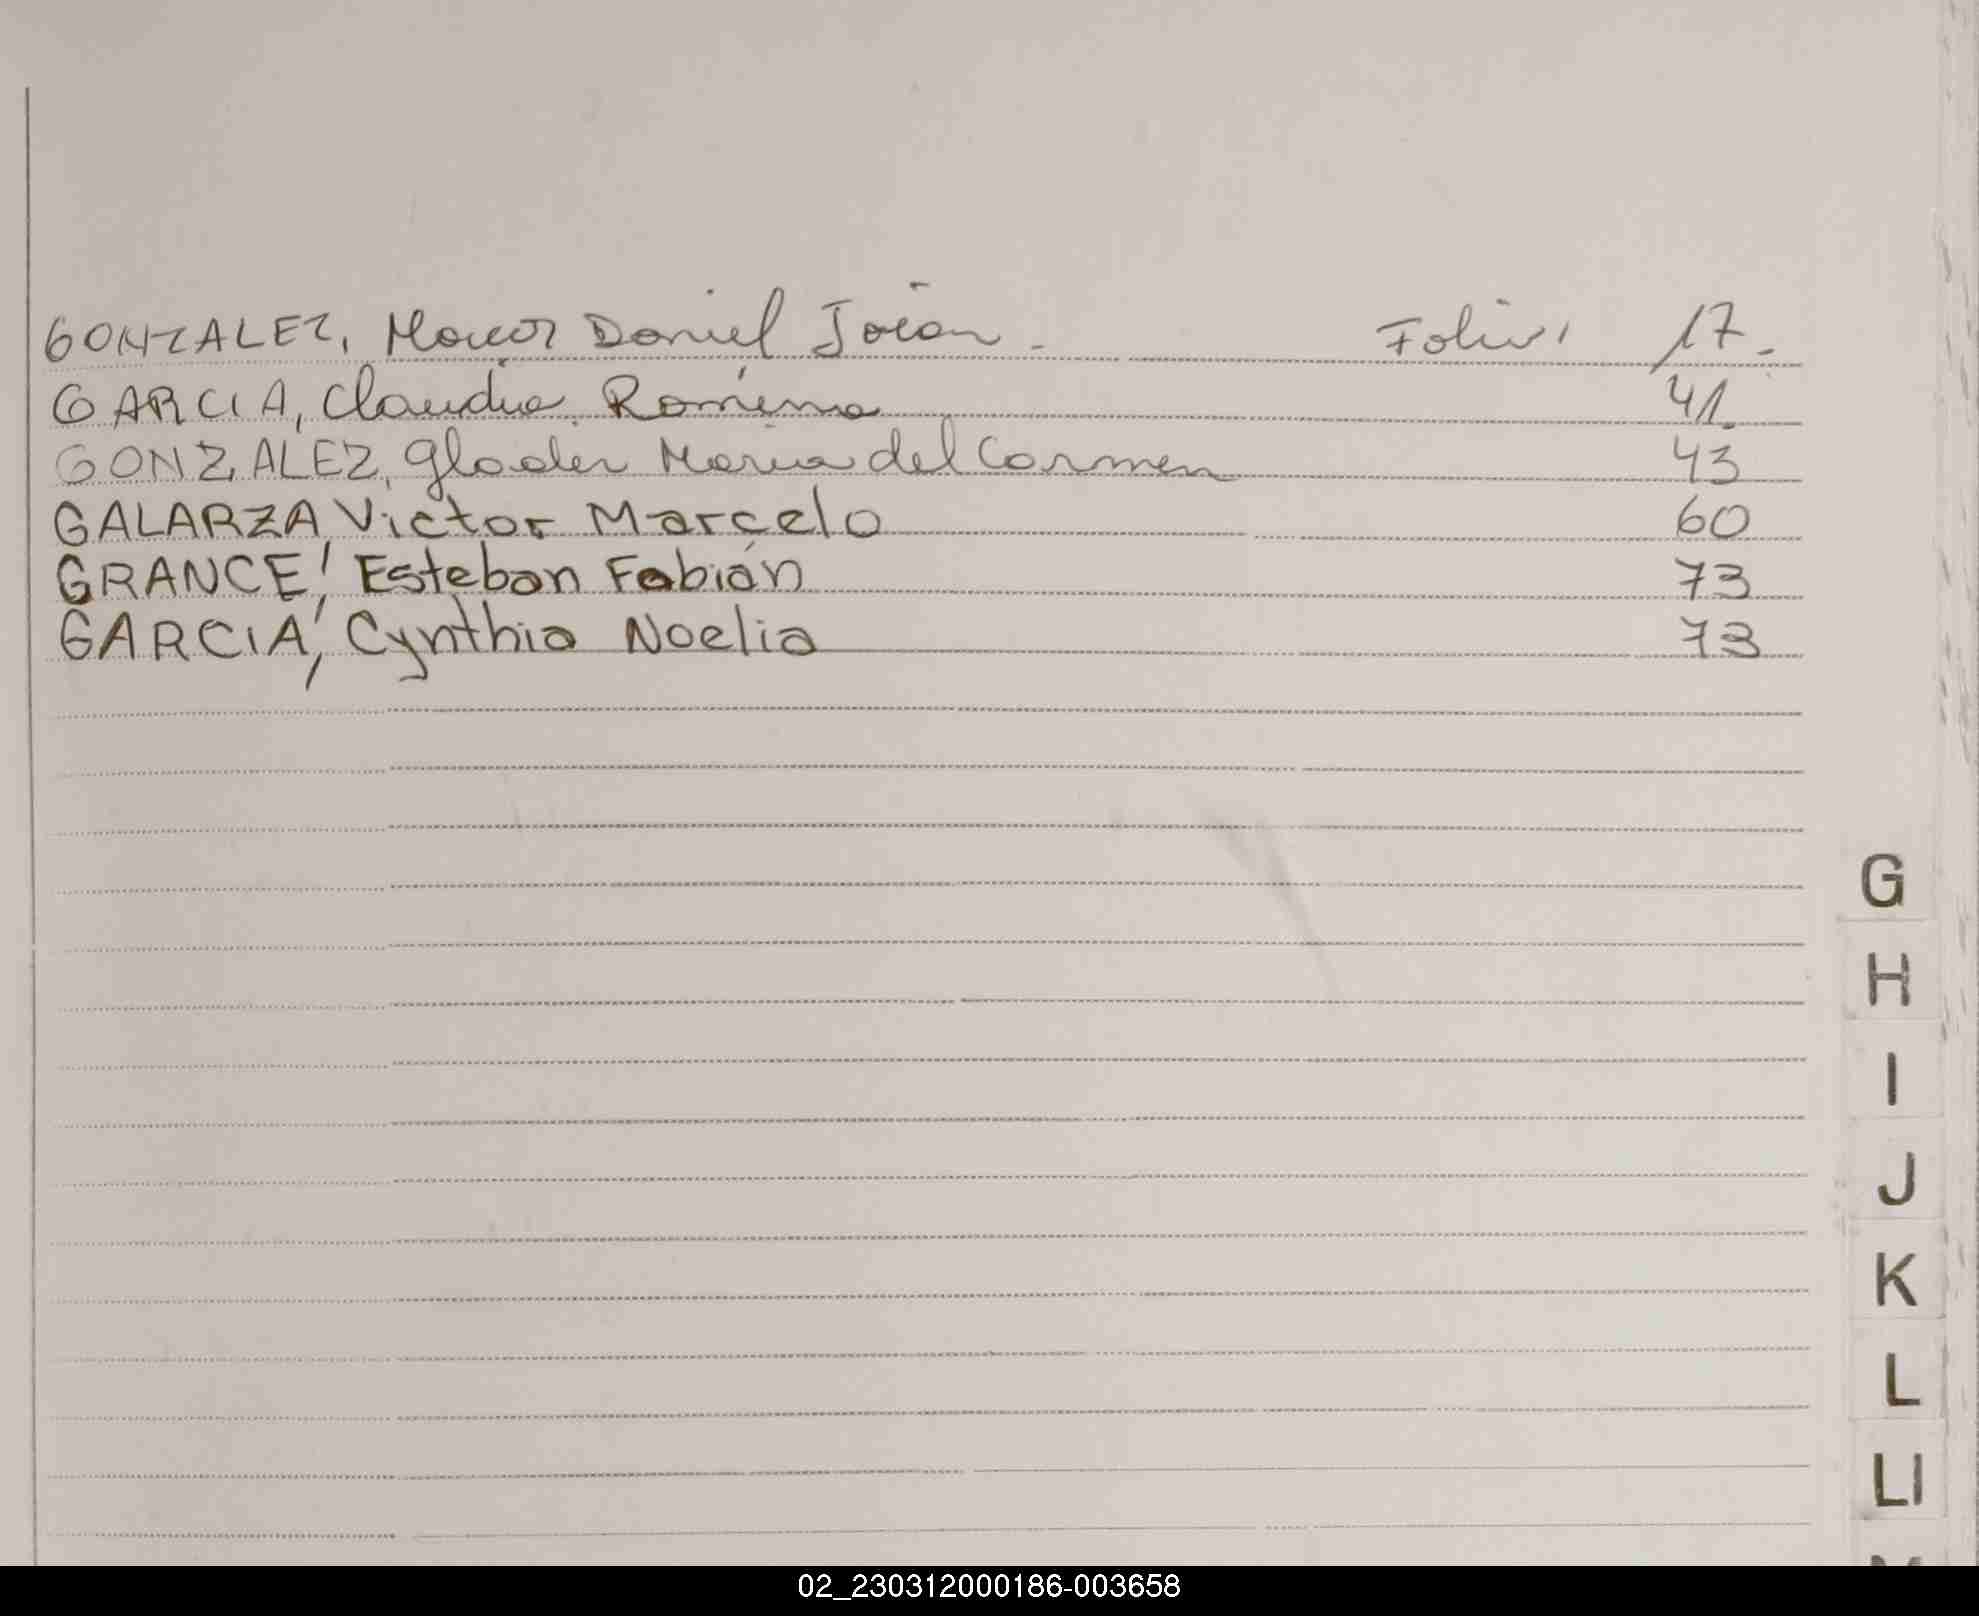 GONZALEZ, Daniel Folio: 17.
GARCIA, Claudia Romina 41
GONZALEZ, María del Carmen 43
GALARZA, Victor Marcelo 60
GRANCE, Esteban Fabián 73
GARCIA, Cynthia Noelia 73
G
H
I
J
K
L
Ll
02_230312000186-003658